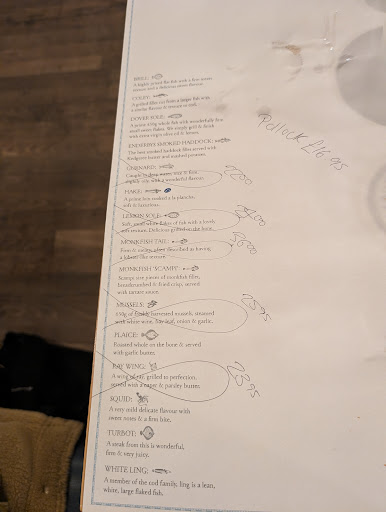 BRILL:
A highly prized flat fish with a firm sweet
COLEY:
A grilled fillet cut from a larger fish with
a similar flavour & texture to cod.
DOVER SOLE:
A prime whole fish with wonderfully firm
small sweet flakes. We simply grill & finish
with extra virgin olive oil & lemon.
SMOKED HADDOCK:
The best smoked haddock fillet served with
and mustard potatoes.
GURNARD:
Caught in deep water, nice & firm
slightly oily, with a wonderful flavour.
HAKE:
A prime hen cooked a la plancha,
soft & luxurious.
LEMON SOLE:
Soft, small white flakes of fish with a lovely
soft texture. Delicious grilled on the bone.
MONKFISH TAIL:
Firm & meaty, often described as having
a lobster like texture.
MONKFISH 'SCAMPI':
Scampi size pieces of monkfish fillet,
breadcrumbed & fried crisp, served
with tartare sauce.
MUSSELS:
of freshly harvested mussels, steamed
with white wine, bay leaf, onion & garlic.
PLAICE:
Roasted whole on the bone & served
with garlic butter.
RAY WING:
A wing of ray, grilled to perfection,
served with a caper & parsley butter.
SQUID:
A very mild delicate flavour with
sweet notes & a firm bite.
TURBOT:
A steak from this is wonderful,
firm & very juicy.
WHITE LING:
A member of the cod family, ling is a lean,
white, large flaked fish.
Pollock £16.95
25.95
23.95